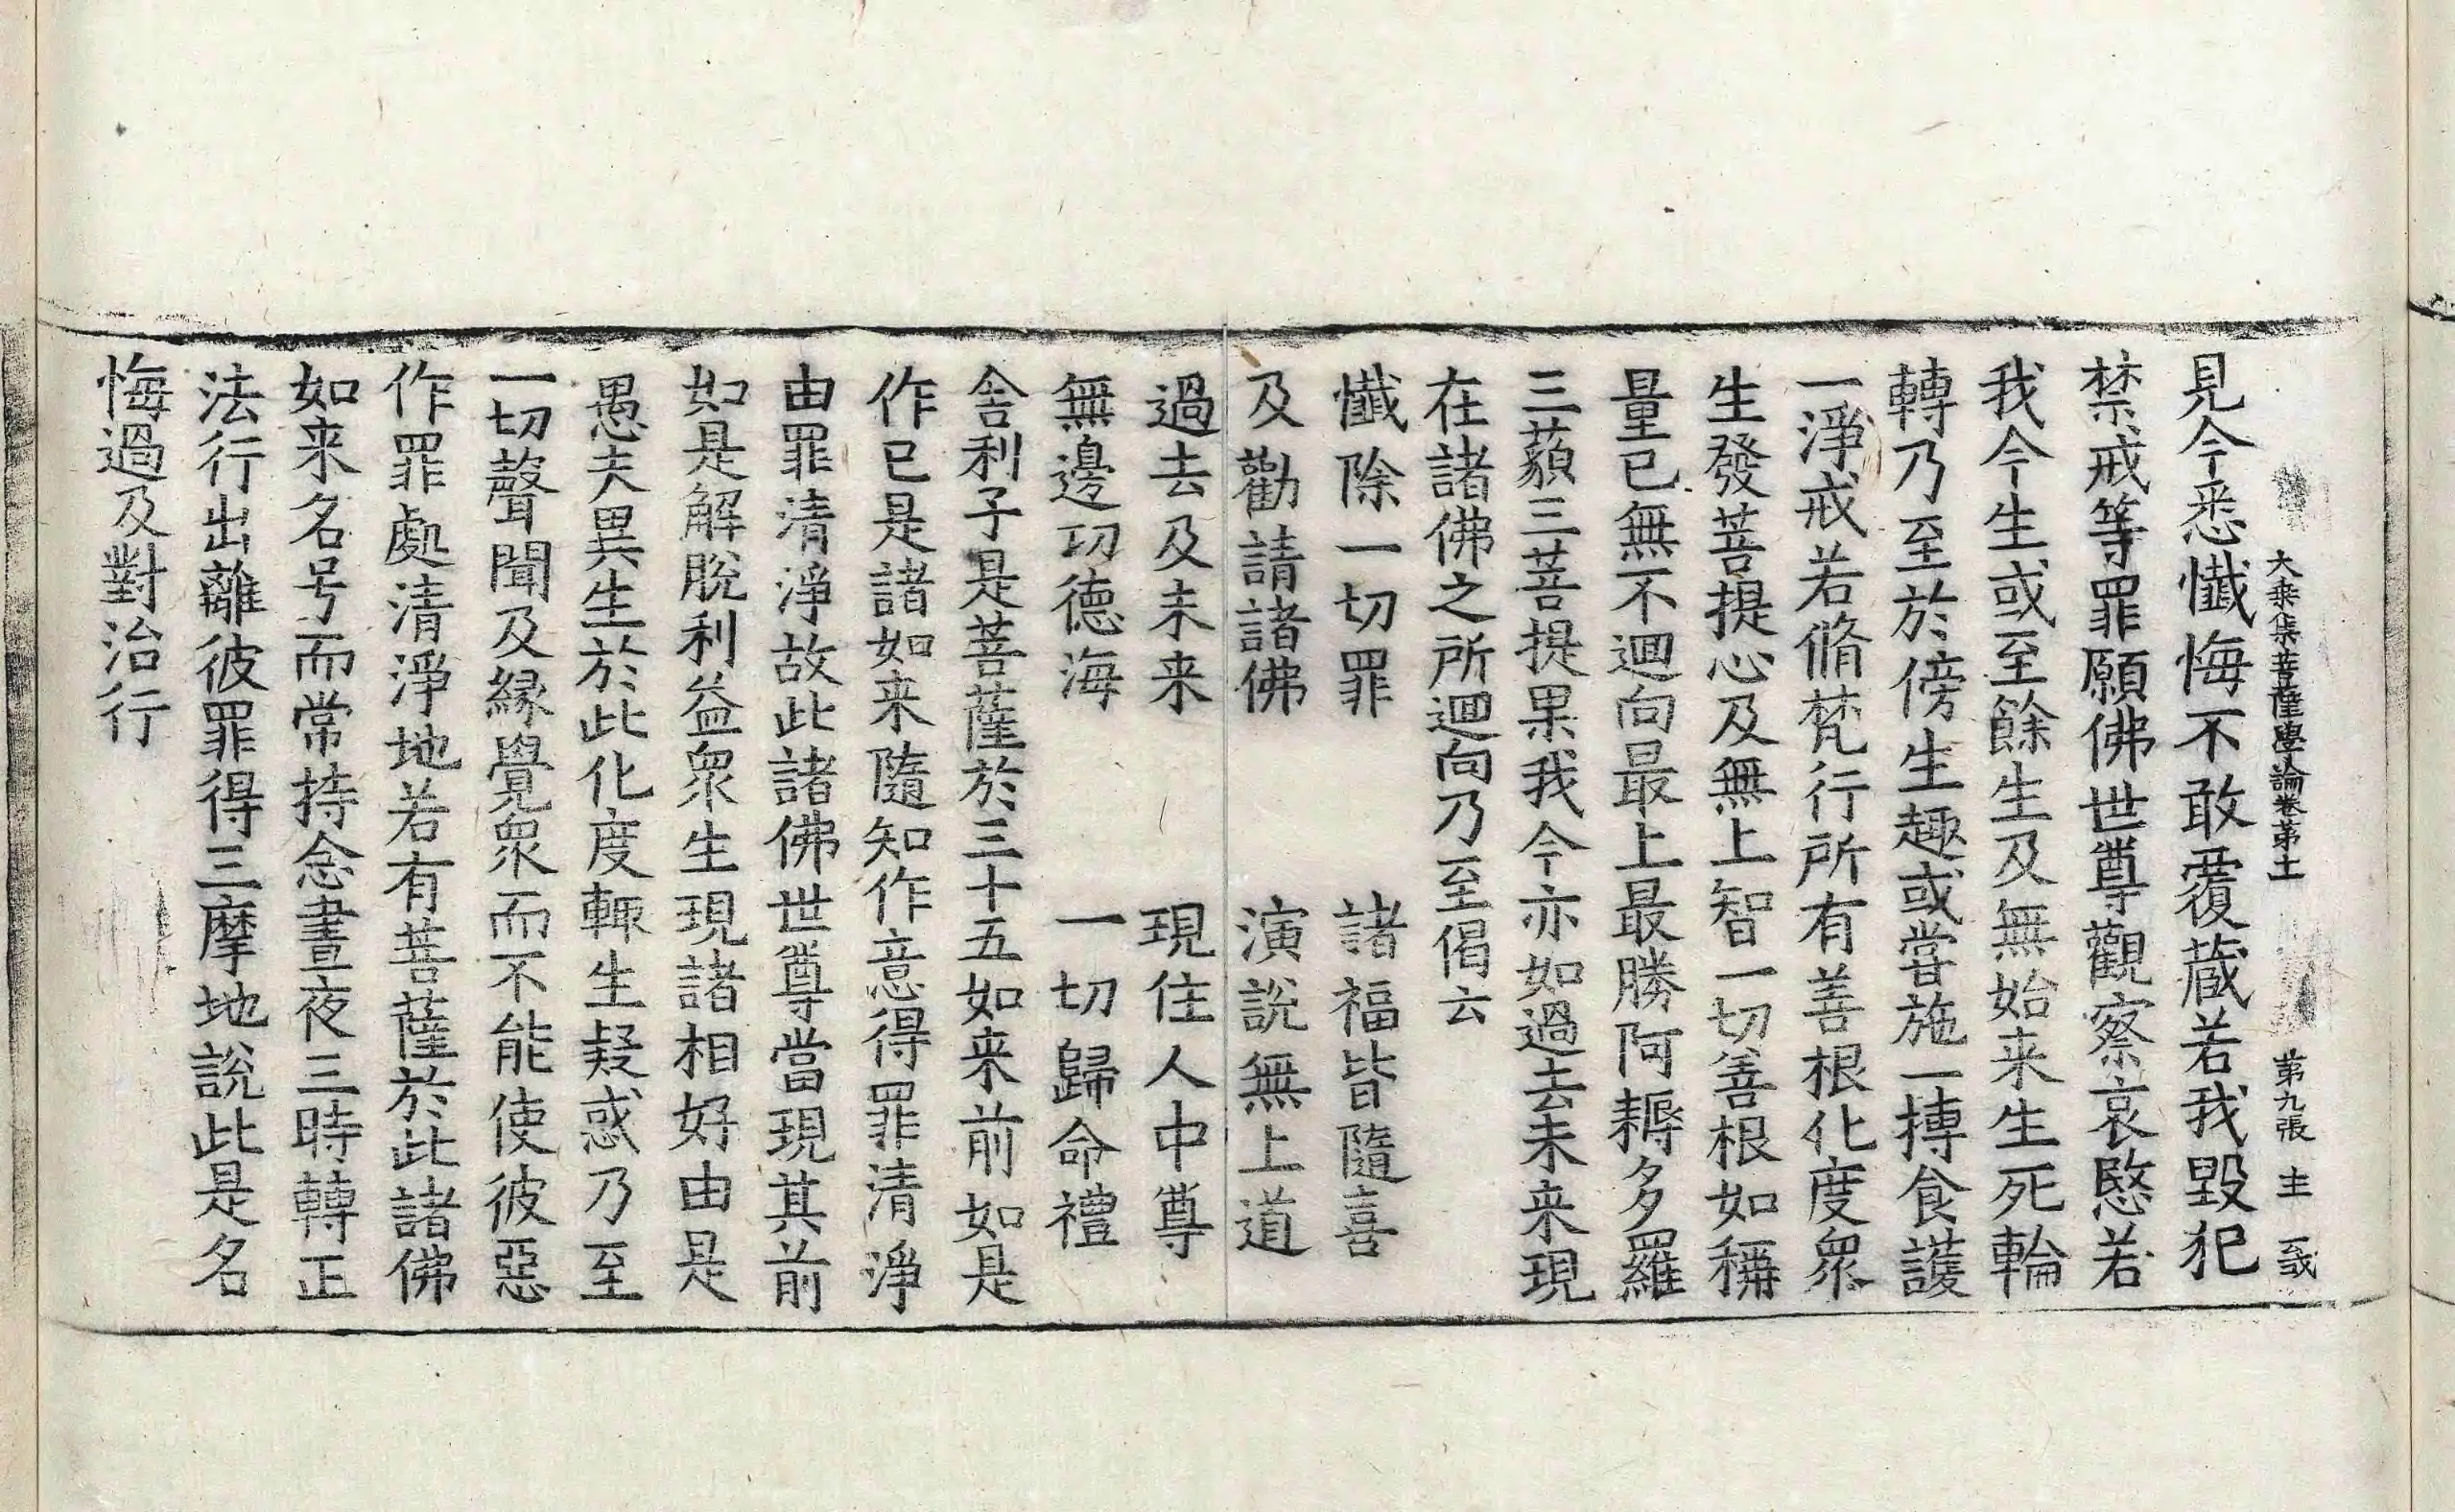 大乘集菩薩學論卷第十一　第九張　主
見今悉懺悔不敢覆蔵若我毀犯
禁戒等罪願佛世尊觀察哀愍若
我今生或至餘生及無始来生死輪
轉乃至於傍生趣或甞施一摶食護
一淨戒若脩梵行所有善根化度衆
生發菩提心及無上智一切善根如稱
量已無不迴向最上最勝阿耨多羅
三藐三菩提果我今亦如過去未来現
在諸佛之所迴向乃至偈云
懺除一切罪　諸福皆隨喜
及勸請諸佛　演說無上道
過去及未来　現住人中尊
無邊功德海　一切歸命禮
舍利子是菩薩於三十五如来前如是
作已是諸如来隨知作意得罪清淨
由罪清淨故此諸佛世尊當現其前
如是解脫利益衆生現諸相好由是
愚夫異生於此化度輙生疑惑乃至
一切聲聞及緣覺衆而不能使彼惡
作罪處清淨地若有菩薩於此諸佛
如来名号而常持念晝夜三時轉正
法行出離彼罪得三摩地說此是名
悔過及對治行